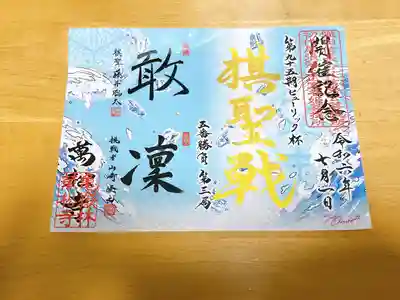 開催記念
令和六年
七月一日
第九十五期ヒューリック杯
棋聖戦
五番勝負 第三局
敢
凜
棋聖 藤井聡太
挑戦者 山崎隆之
萬松寺